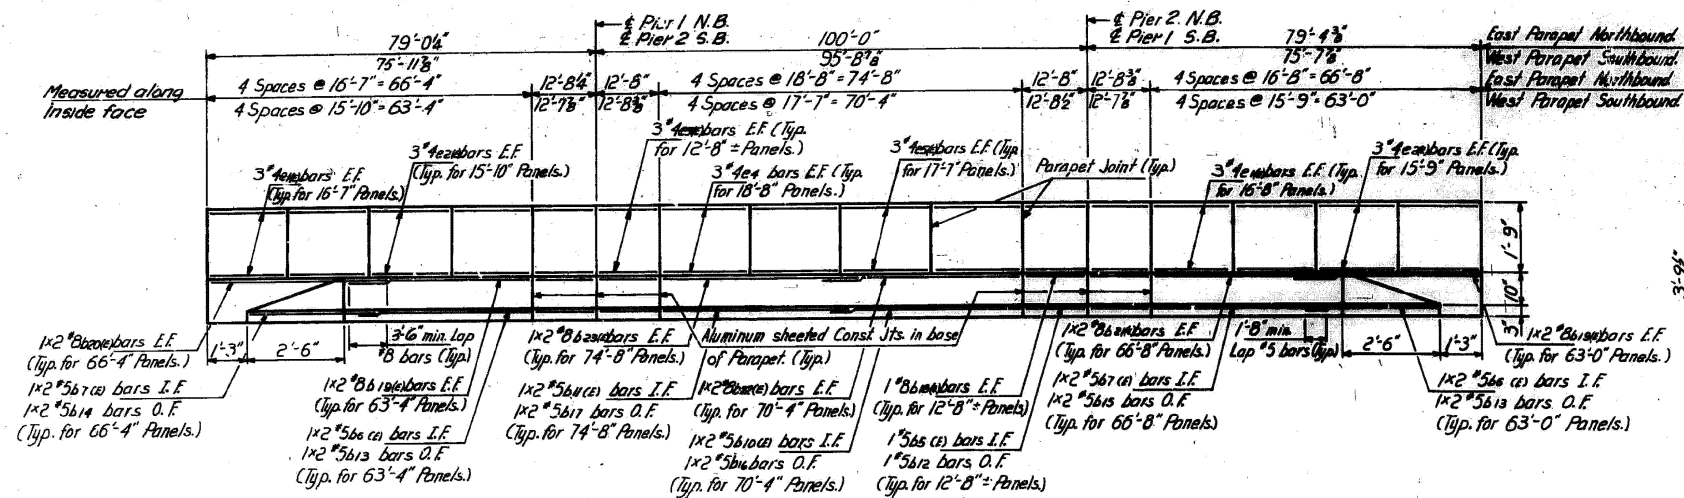 ℄ Pier 1 N.B.
℄ Pier 2 S.B.
℄ Pier 2 N.B.
℄ Pier 1 S.B.
79'-0¼"
75'-11⅞"
100'-0"
95'-8⅞"
79'-4⅜"
75'-7⅞"
East Parapet Northbound
West Parapet Southbound
East Parapet Northbound
West Parapet Southbound
Measured along
Inside face
4 Spaces @ 16'-7" = 66'-4"
4 Spaces @ 15'-10" = 63'-4"
12'-8¼"
12'-7⅞"
12'-8"
12'-8⅜"
4 Spaces @ 18'-8" = 74'-8"
4 Spaces @ 17'-7" = 70'-4"
12'-8"
12'-8½"
12'-8⅜"
12'-7⅞"
4 Spaces @ 16'-8" = 66'-8"
4 Spaces @ 15'-9" = 63'-0"
3 #4 bars E.F.
(Typ. for 16'-7" Panels.)
3 #4 bars E.F.
(Typ. for 15'-10" Panels.)
3 #4 bars E.F. (Typ.
for 12'-8" ± Panels.)
3 #4e4 bars E.F. (Typ.
for 18'-8" Panels.)
3 #4 bars E.F. (Typ.
for 17'-7" Panels.)
Parapet Joint (Typ.)
3 #4 bars E.F. (Typ.
for 16'-8" Panels.)
3 #4 bars E.F. (Typ.
for 15'-9" Panels.)
1'-9"
10"
3"
1x2 #8b20(E) bars E.F.
(Typ. for 66'-4" Panels.)
1x2 #5b7(E) bars I.F.
1x2 #5b14 bars O.F.
(Typ. for 66'-4" Panels.)
1'-3"
2'-6"
3'-6" min. Lap
#8 bars (Typ.)
1x2 #8b19(E) bars E.F.
(Typ. for 63'-4" Panels.)
1x2 #5b6(E) bars I.F.
1x2 #5b13 bars O.F.
(Typ. for 63'-4" Panels.)
1x2 bars E.F.
(Typ. for 74'-8" Panels.)
1x2 #5b11(E) bars I.F.
1x2 #5b17 bars O.F.
(Typ. for 74'-8" Panels.)
Aluminum sheeted Const. Jts. in base
of Parapet. (Typ.)
1x2 bars E.F.
(Typ. for 70'-4" Panels.)
1x2 #5b10(E) bars I.F.
1x2 #5b16 bars O.F.
(Typ. for 70'-4" Panels.)
1 bars E.F.
(Typ. for 12'-8" ± Panels.)
1 #5b5(E) bars I.F.
1 #5b12 bars O.F.
(Typ. for 12'-8" ± Panels.)
1x2 bars E.F.
(Typ. for 66'-8" Panels.)
1x2 #5b7(E) bars I.F.
1x2 #5b15 bars O.F.
(Typ. for 66'-8" Panels.)
1'-8" min.
Lap #5 bars (Typ.)
2'-6"
1'-3"
1x2 #8b19(E) bars E.F.
(Typ. for 63'-0" Panels.)
1x2 #5b6(E) bars I.F.
1x2 #5b13 bars O.F.
(Typ. for 63'-0" Panels.)